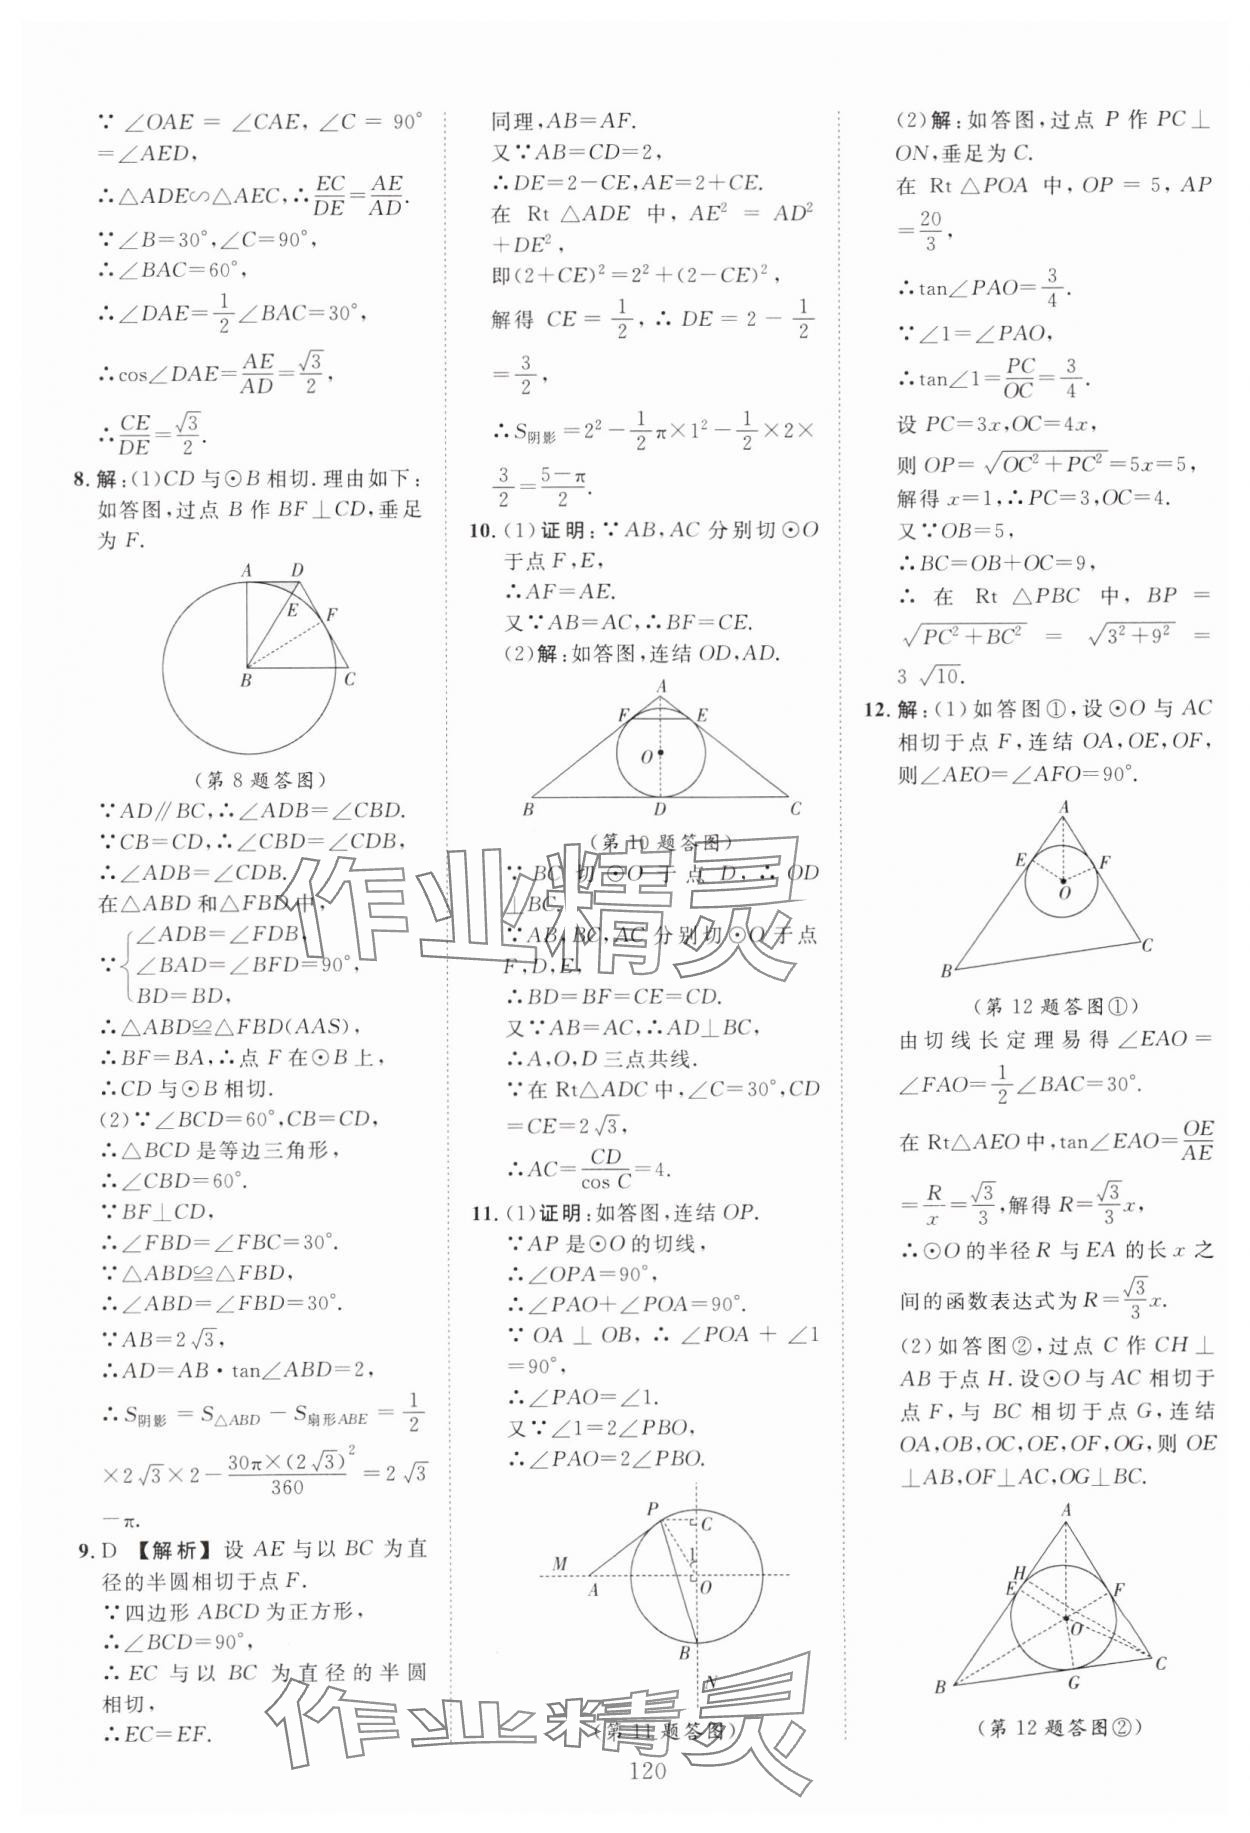 ∵ ∠OAE = ∠CAE, ∠C = 90°
=∠AED,
∴△ADE∽△AEC,∴EC/DE=AE/AD.
∵∠B=30°,∠C=90°,
∴∠BAC=60°,
∴∠DAE=1/2∠BAC=30°,
∴cos∠DAE=AE/AD=√3/2,
∴CE/DE=√3/2.
8.解:(1)CD与⊙B相切.理由如下:
如答图,过点B作BF⊥CD,垂足
为F.
A D
E F
B C
(第8题答图)
∵AD∥BC,∴∠ADB=∠CBD.
∵CB=CD,∴∠CBD=∠CDB,
∴∠ADB=∠CDB.
在△ABD和△FBD中,
∠ADB=∠FDB,
∵ ∠BAD=∠BFD=90°,
BD=BD,
∴△ABD≌△FBD(AAS),
∴BF=BA,∴点F在⊙B上,
∴CD与⊙B相切.
(2)∵∠BCD=60°,CB=CD,
∴△BCD是等边三角形,
∴∠CBD=60°.
∵BF⊥CD,
∴∠FBD=∠FBC=30°.
∵△ABD≌△FBD,
∴∠ABD=∠FBD=30°.
∵AB=2√3,
∴AD=AB·tan∠ABD=2,
∴S阴影=S△ABD-S扇形ABE=1/2
×2√3×2-30π×(2√3)²/360=2√3
-π.
9.D 【解析】设AE与以BC为直
径的半圆相切于点F.
∵四边形ABCD为正方形,
∴∠BCD=90°,
∴EC与以BC为直径的半圆
相切,
∴EC=EF.
同理,AB=AF.
又∵AB=CD=2,
∴DE=2-CE,AE=2+CE.
在 Rt△ADE 中, AE² = AD²
+DE²,
即(2+CE)²=2²+(2-CE)²,
解得 CE=1/2,∴DE=2-1/2
=3/2,
∴S阴影=2²-1/2π×1²-1/2×2×
3/2=5-π/2.
10.(1)证明:∵AB,AC分别切⊙O
于点F,E,
∴AF=AE.
又∵AB=AC,∴BF=CE.
(2)解:如答图,连结OD,AD.
A
F E
O
B D C
(第10题答图)
∵BC切⊙O于点D,∴OD
⊥BC.
∵AB,BC,AC分别切⊙O于点
F,D,E,
∴BD=BF=CE=CD.
又∵AB=AC,∴AD⊥BC,
∴A,O,D三点共线.
∵在Rt△ADC中,∠C=30°,CD
=CE=2√3,
∴AC=CD/cos C=4.
11.(1)证明:如答图,连结OP.
∵AP是⊙O的切线,
∴∠OPA=90°,
∴∠PAO+∠POA=90°.
∵ OA⊥OB, ∴∠POA+∠1
=90°,
∴∠PAO=∠1.
又∵∠1=2∠PBO,
∴∠PAO=2∠PBO.
P C
M 1
A O
B
N
(第11题答图)
(2)解:如答图,过点P作PC⊥
ON,垂足为C.
在 Rt△POA 中, OP=5, AP
=20/3,
∴tan∠PAO=3/4.
∵∠1=∠PAO,
∴tan∠1=PC/OC=3/4.
设PC=3x,OC=4x,
则OP=√(OC²+PC²)=5x=5,
解得x=1,∴PC=3,OC=4.
又∵OB=5,
∴BC=OB+OC=9,
∴ 在 Rt△PBC 中, BP =
√(PC²+BC²) = √(3²+9²) =
3√10.
12.解:(1)如答图①,设⊙O与AC
相切于点F,连结OA,OE,OF,
则∠AEO=∠AFO=90°.
A
E F
O
B C
(第12题答图①)
由切线长定理易得∠EAO=
∠FAO=1/2∠BAC=30°.
在Rt△AEO中,tan∠EAO=OE/AE
=R/x=√3/3,解得R=√3/3x,
∴⊙O的半径R与EA的长x之
间的函数表达式为R=√3/3x.
(2)如答图②,过点C作CH⊥
AB于点H.设⊙O与AC相切于
点F,与BC相切于点G,连结
OA,OB,OC,OE,OF,OG,则OE
⊥AB,OF⊥AC,OG⊥BC.
A
H
E F
O
B G C
(第12题答图②)
作业精灵
作业精灵
120